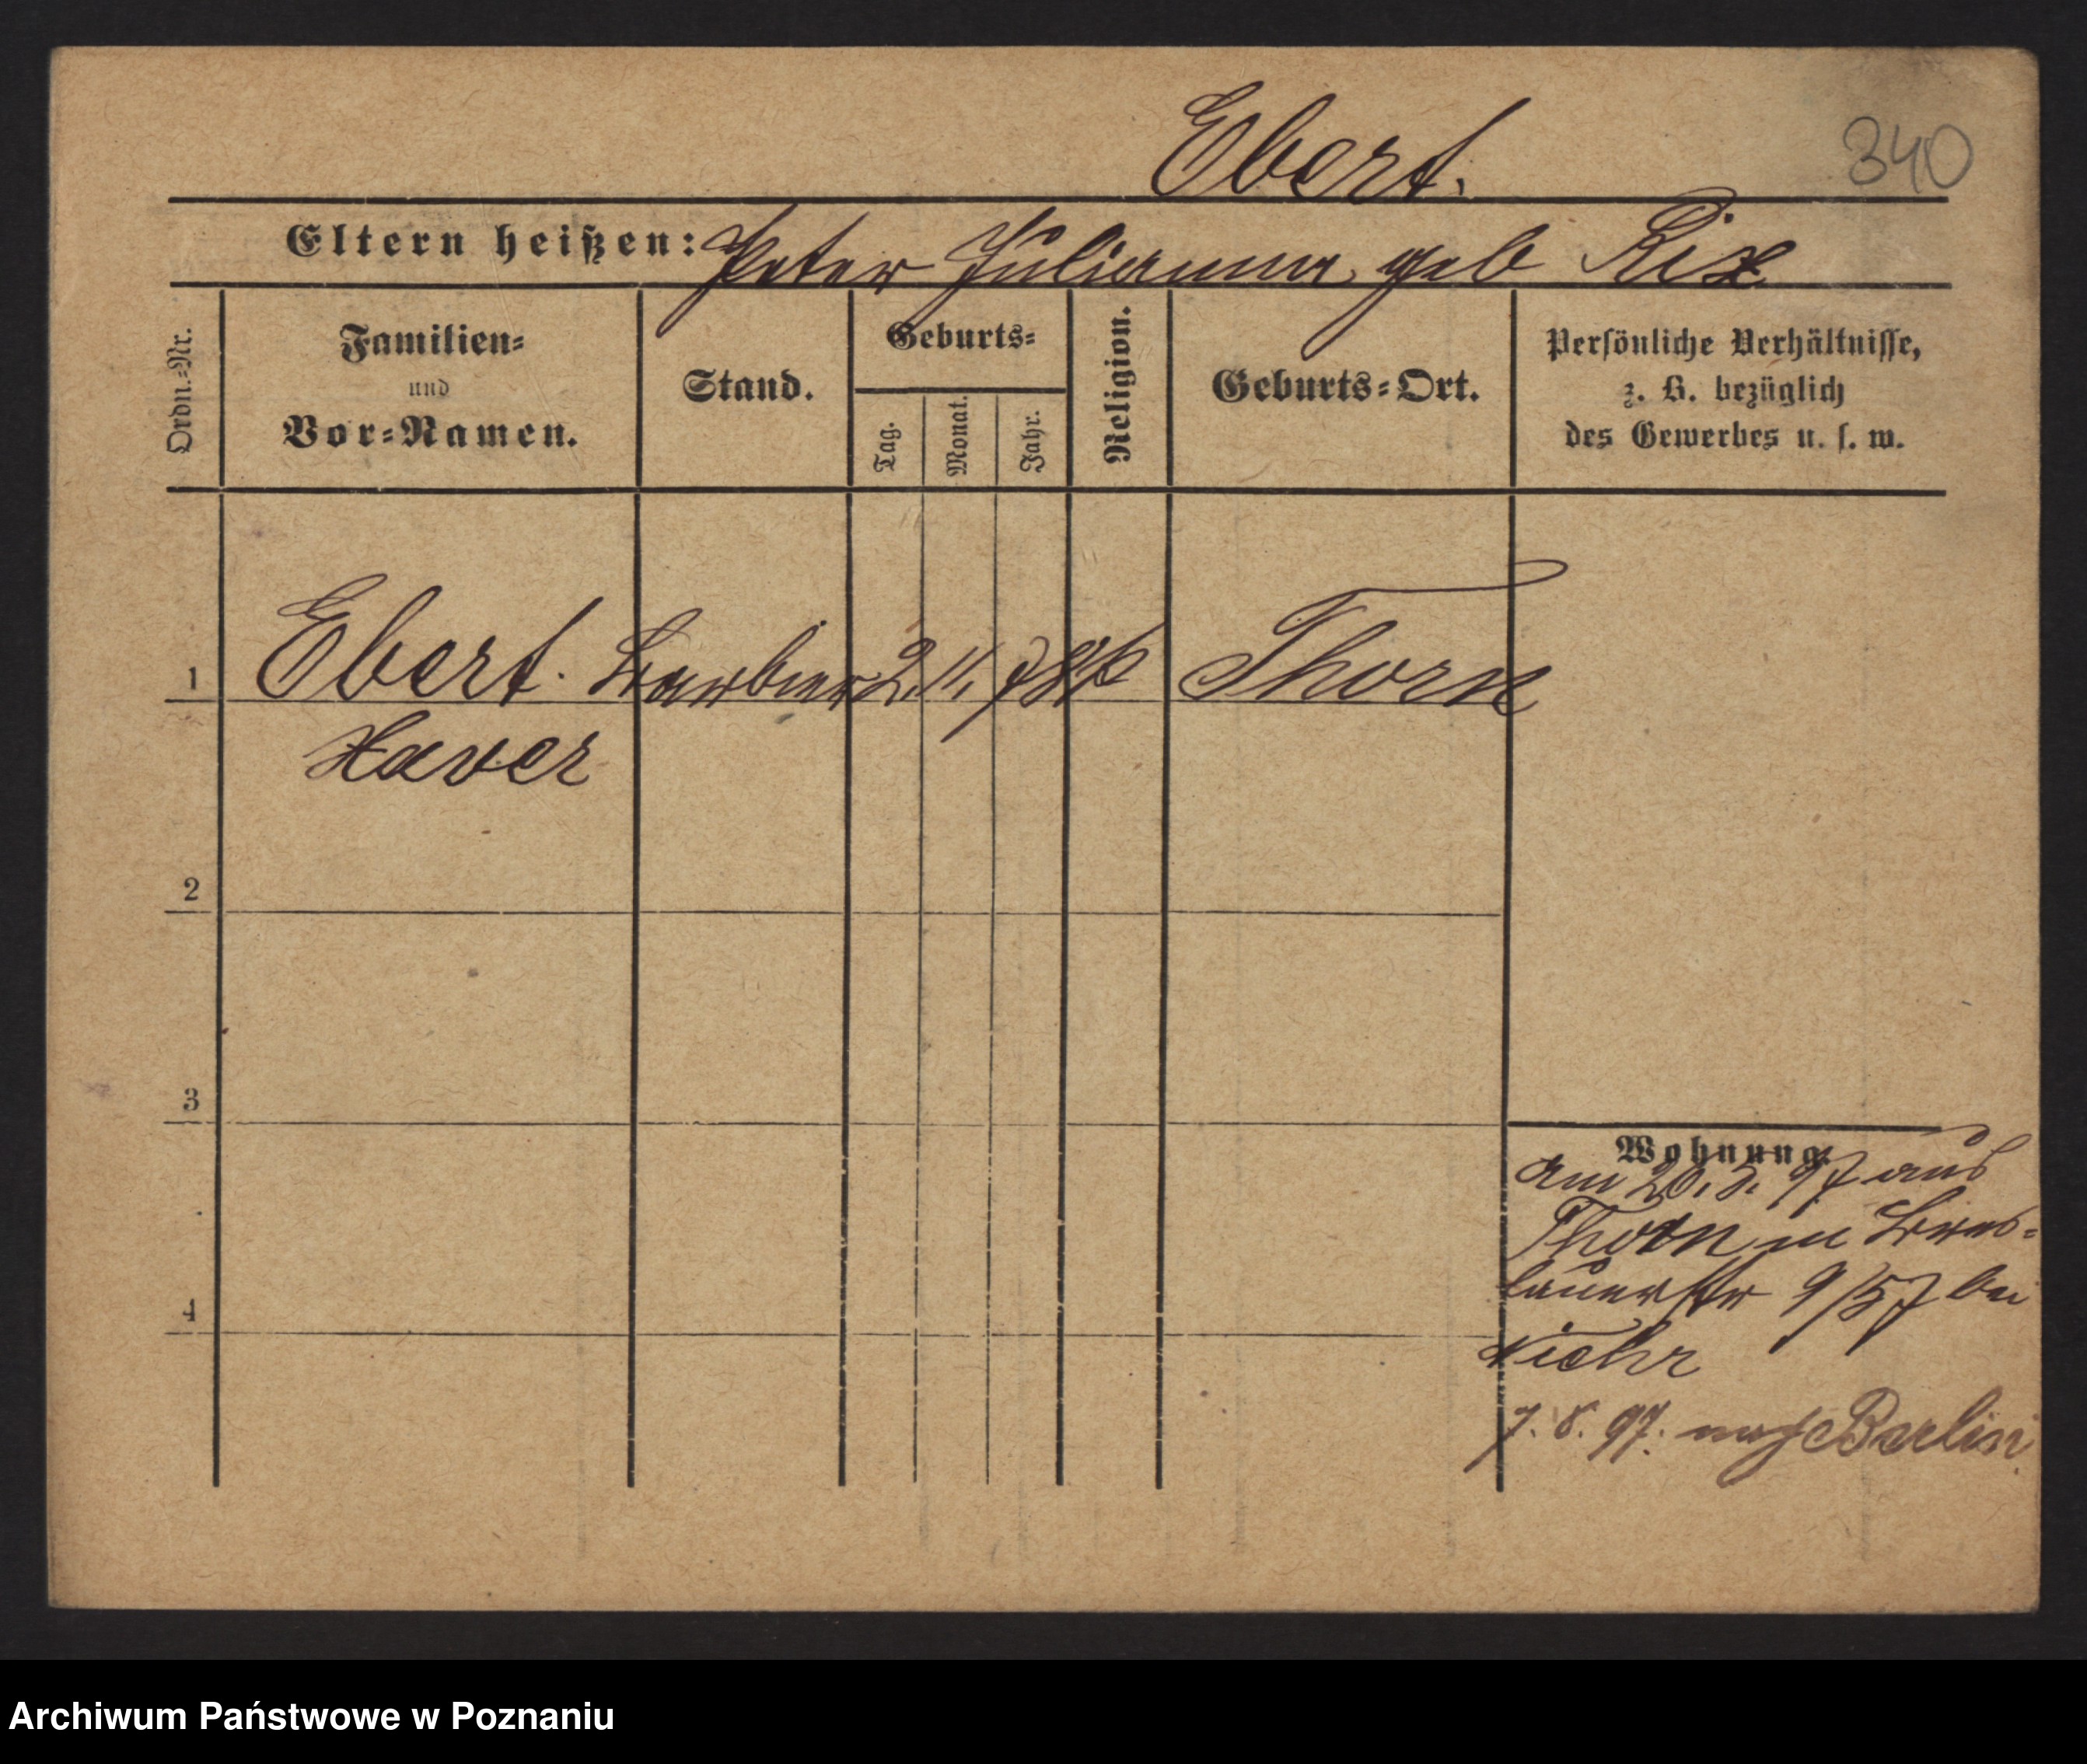 Ebert.
340
Eltern heißen: Peter Julianna geb Rix
Ordn.=Nr.
Familien=
und
Vor=Namen.
Stand.
Geburts=
Tag.
Monat.
Jahr.
Religion.
Geburts=Ort.
Persönliche Verhältnisse,
z. B. bezüglich
des Gewerbes u. s. w.
1 Ebert. Barbier 2. 11. Thorn
Xaver
2
3
4
Wohnung.
am 20. 5. 97 aus
Thorn in Bres=
lauerstr 9/57 bei
Viehr
7. 8. 97. nach Berlin
Archiwum Państwowe w Poznaniu